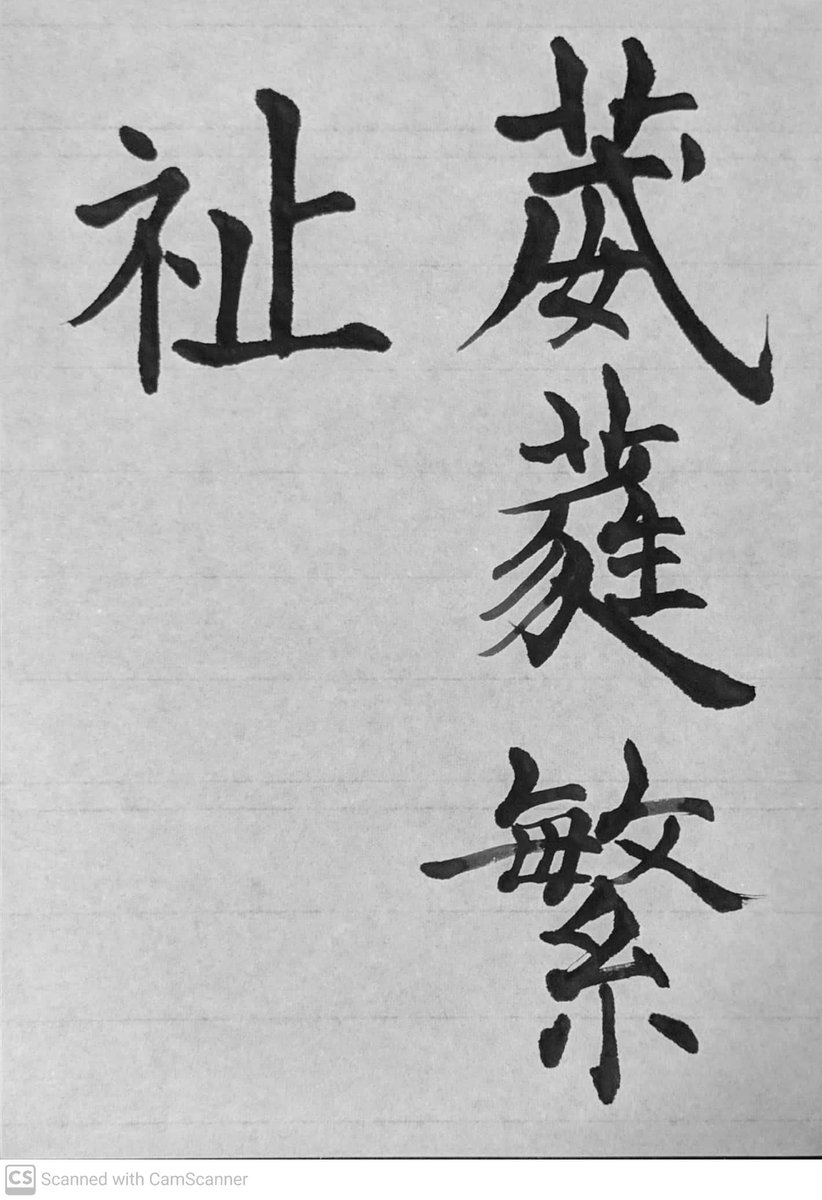 葳蕤繁
祉
CS Scanned with CamScanner